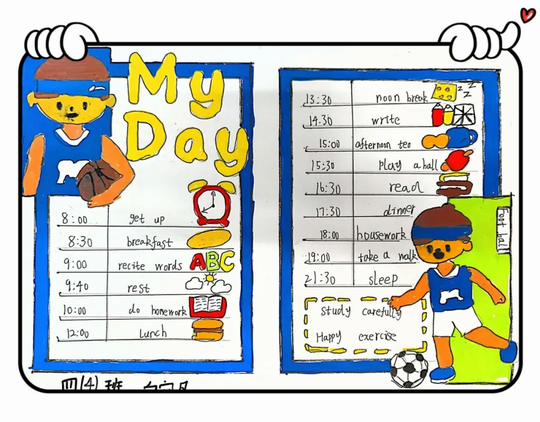 My
Day
8:00 get up
8:30 breakfast
9:00 recite words ABC
9:40 rest
10:00 do homework
12:00 lunch
四(4)班
13:30 noon break zz
14:30 write
15:00 afternoon tea
15:30 play a ball
16:30 read
17:30 dinner
18:00 housework
19:00 take a walk
21:30 sleep
study carefully
Happy exercise
Foot ball